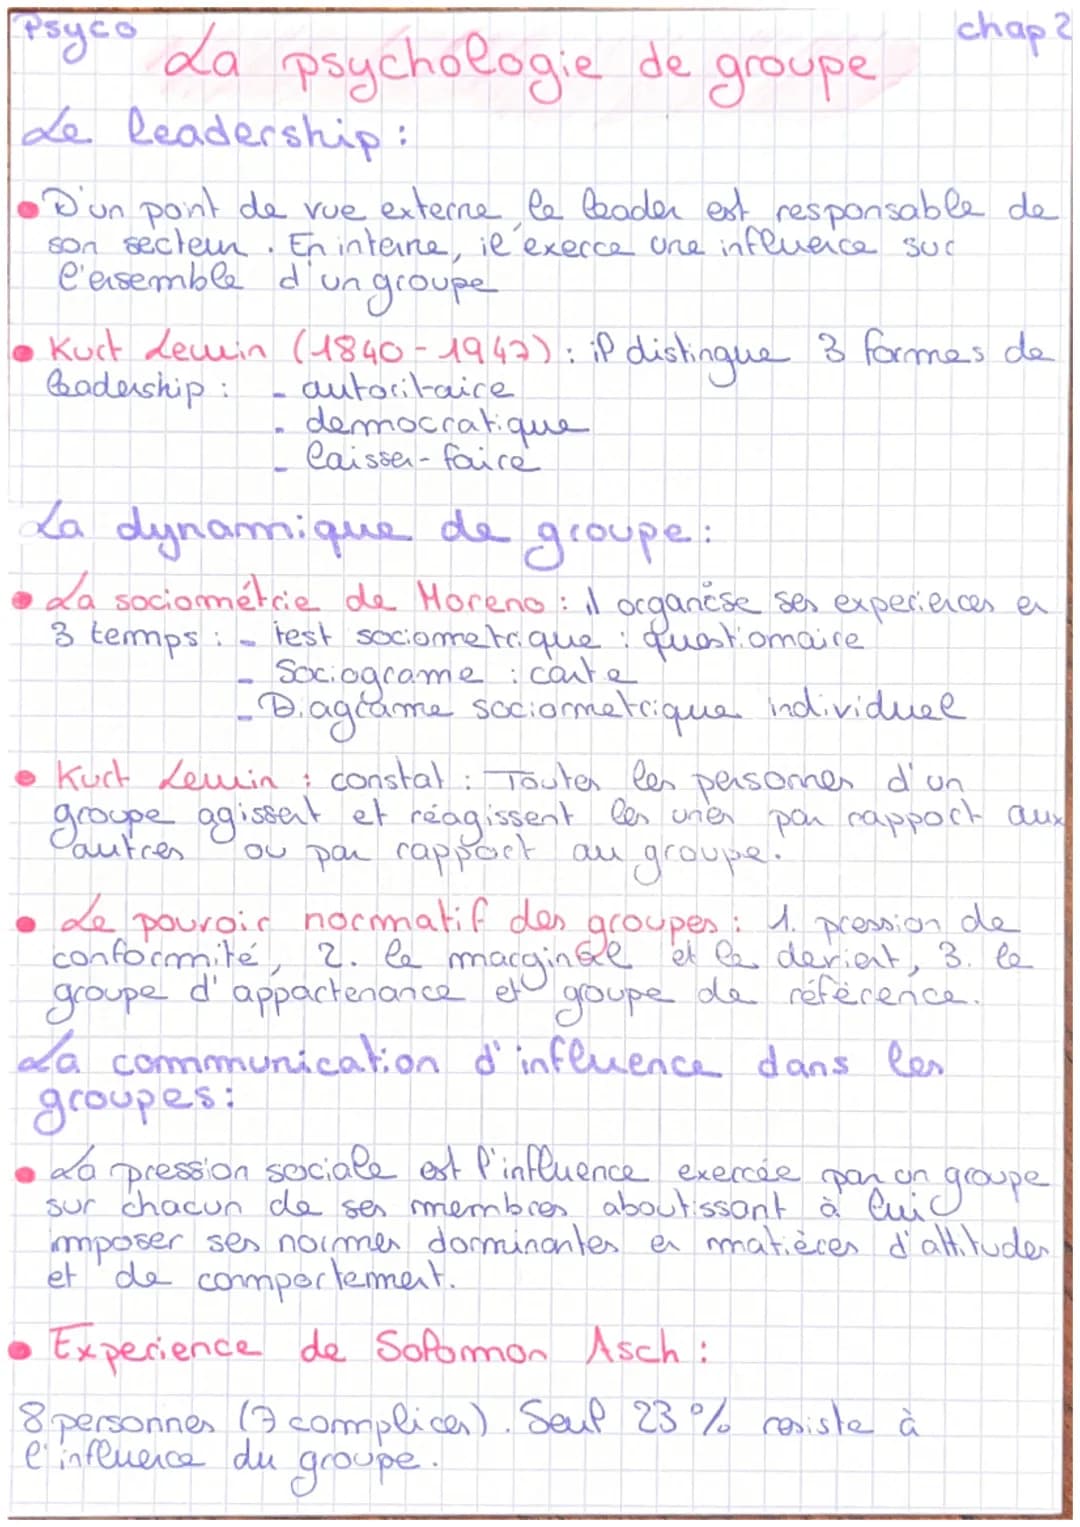 Psyco
chap 2
La psychologie de groupe
Le leadership :
• D'un point de vue externe, le leader est responsable de
son secteur. En interne, il exerce une influence sur
l'ensemble d'un groupe
• Kurt Lewin (1840-1947) : il distingue 3 formes de
leadership : - autoritaire
- democratique
- laisser-faire
La dynamique de groupe :
• La sociométrie de Moreno : il organise ses experiences en
3 temps : - test sociometrique : questionnaire
- Sociograme : carte
- Diagrame sociometrique individuel
• Kurt Lewin : constat : Toutes les personnes d'un
groupe agissent et réagissent les unes par rapport aux
autres ou par rapport au groupe.
• Le pouvoir normatif des groupes : 1. pression de
conformité, 2. le marginal et le deviant, 3. le
groupe d'appartenance et groupe de référence.
La communication d'influence dans les
groupes :
• La pression sociale est l'influence exercée par un groupe
sur chacun de ses membres aboutissant à lui
imposer ses normes dominantes en matières d'attitudes
et de comportement.
• Experience de Solomon Asch :
8 personnes (7 complices). Seul 23 % resiste à
l'influence du groupe.